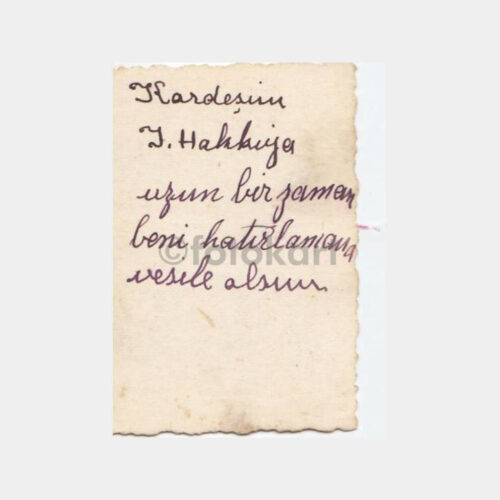 Kardeşim
İ. Hakkıya
uzun bir zaman
beni hatırlamana
vesele olsun.
©fotokart